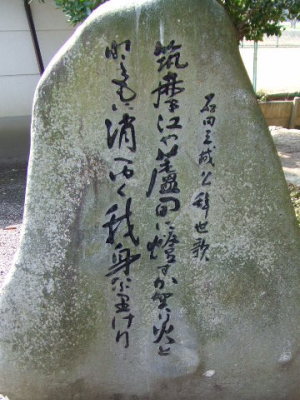 石田三成公辞世歌
筑摩江や芦間に燈すかゞり火と
ともに消ゆく我身なりけり